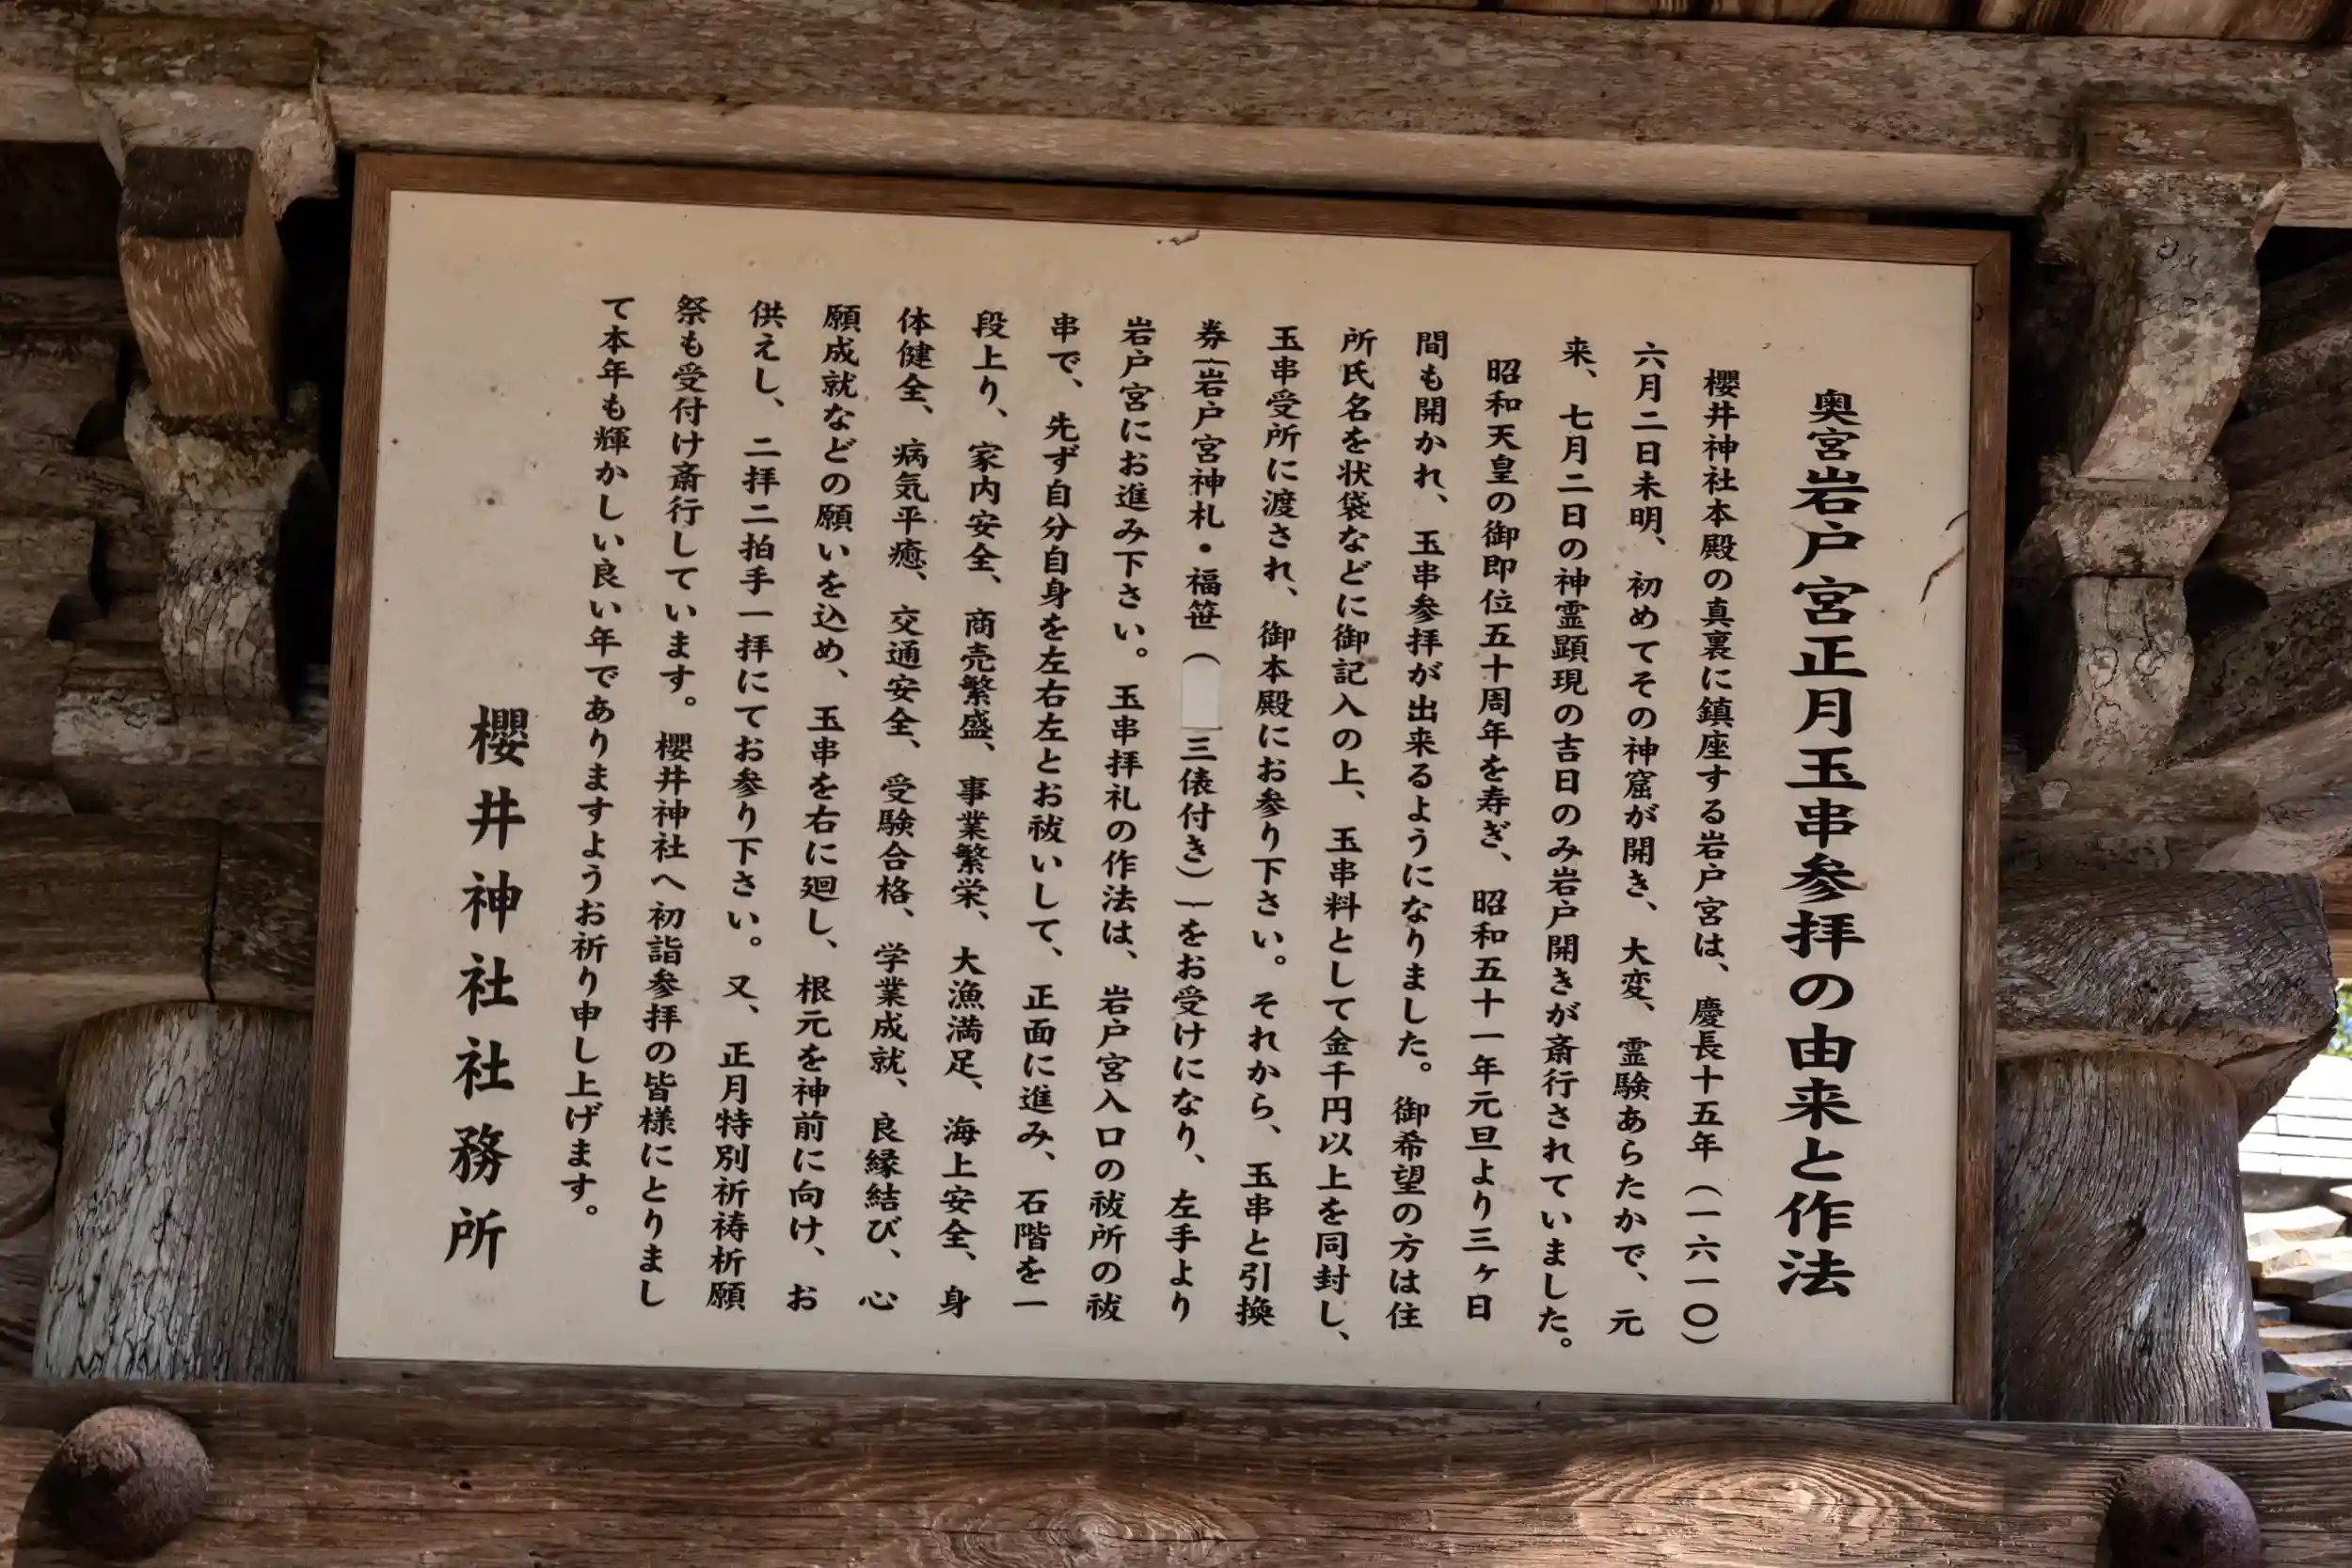 奥宮岩戸宮正月玉串参拝の由来と作法
櫻井神社本殿の真裏に鎮座する岩戸宮は、慶長十五年（一六一〇）
六月二日未明、初めてその神窟が開き、大変、霊験あらたかで、元
来、七月二日の神霊顕現の吉日のみ岩戸開きが斎行されていました。
昭和天皇の御即位五十周年を寿ぎ、昭和五十一年元旦より三ヶ日
間も開かれ、玉串参拝が出来るようになりました。御希望の方は住
所氏名を状袋などに御記入の上、玉串料として金千円以上を同封し、
玉串受所に渡され、御本殿にお参り下さい。それから、玉串と引換
券〔岩戸宮神札・福笹（三俵付き）〕をお受けになり、左手より
岩戸宮にお進み下さい。玉串拝礼の作法は、岩戸宮入口の祓所の祓
串で、先ず自分自身を左右左とお祓いして、正面に進み、石階を一
段上り、家内安全、商売繁盛、事業繁栄、大漁満足、海上安全、身
体健全、病気平癒、交通安全、受験合格、学業成就、良縁結び、心
願成就などの願いを込め、玉串を右に廻し、根元を神前に向け、お
供えし、二拝二拍手一拝にてお参り下さい。又、正月特別祈祷祈願
祭も受付け斎行しています。櫻井神社へ初詣参拝の皆様にとりまし
て本年も輝かしい良い年でありますようお祈り申し上げます。
櫻井神社社務所